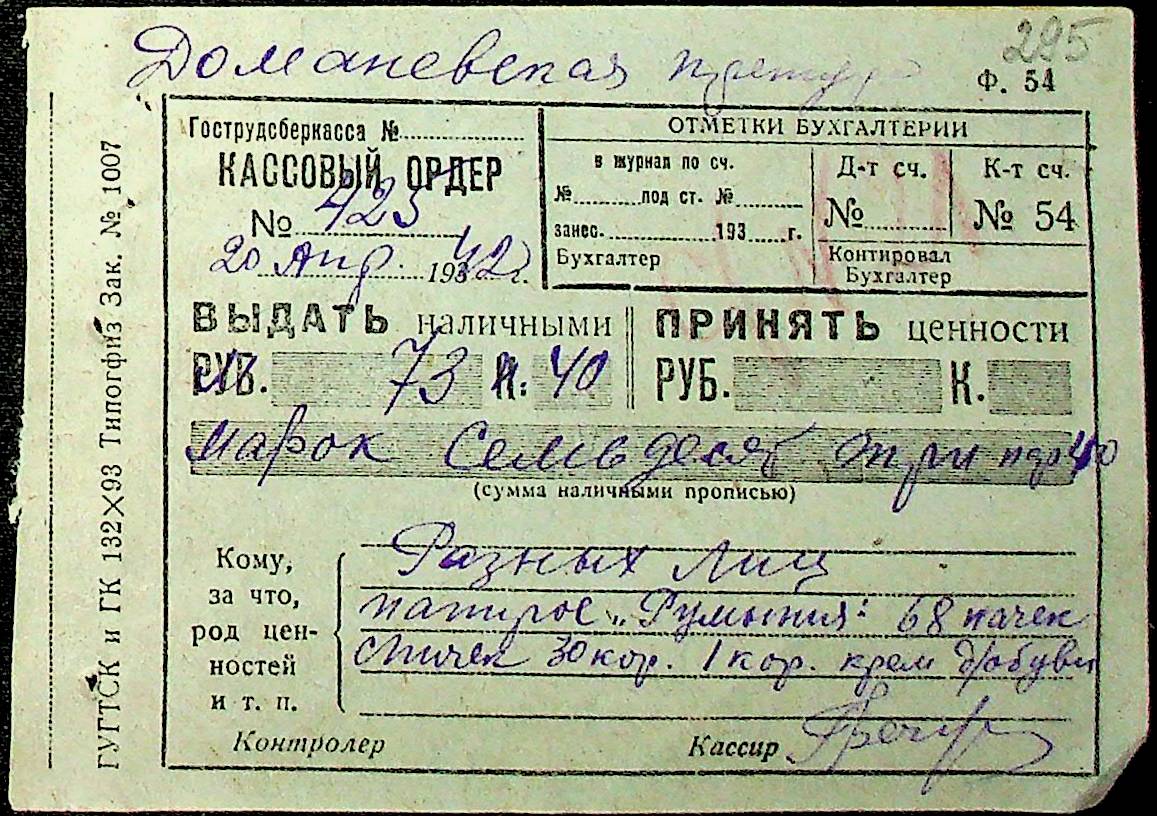 295
Доманевская претура
Ф. 54
Гострудсберкасса №
КАССОВЫЙ ОРДЕР
№ 425
20 Апр. 1942 г.
ОТМЕТКИ БУХГАЛТЕРИИ
в журнал по сч.
№ под ст. №
занес. 193 г.
Бухгалтер
Д-т сч.
№
К-т сч.
№ 54
Контировал
Бухгалтер
ВЫДАТЬ наличными
РУБ. 73 К. 40
ПРИНЯТЬ ценности
РУБ. К.
марок Семьдесят три пф 40
(сумма наличными прописью)
Кому,
за что,
род цен-
ностей
и т. п.
Разных лиц
папирос „Румыния: 68 пачек
спичек 30 кор. 1 кор. крем д/обуви
Контролер
Кассир
ГУГТСК и ГК 132×93 Типогфиз Зак. № 1007